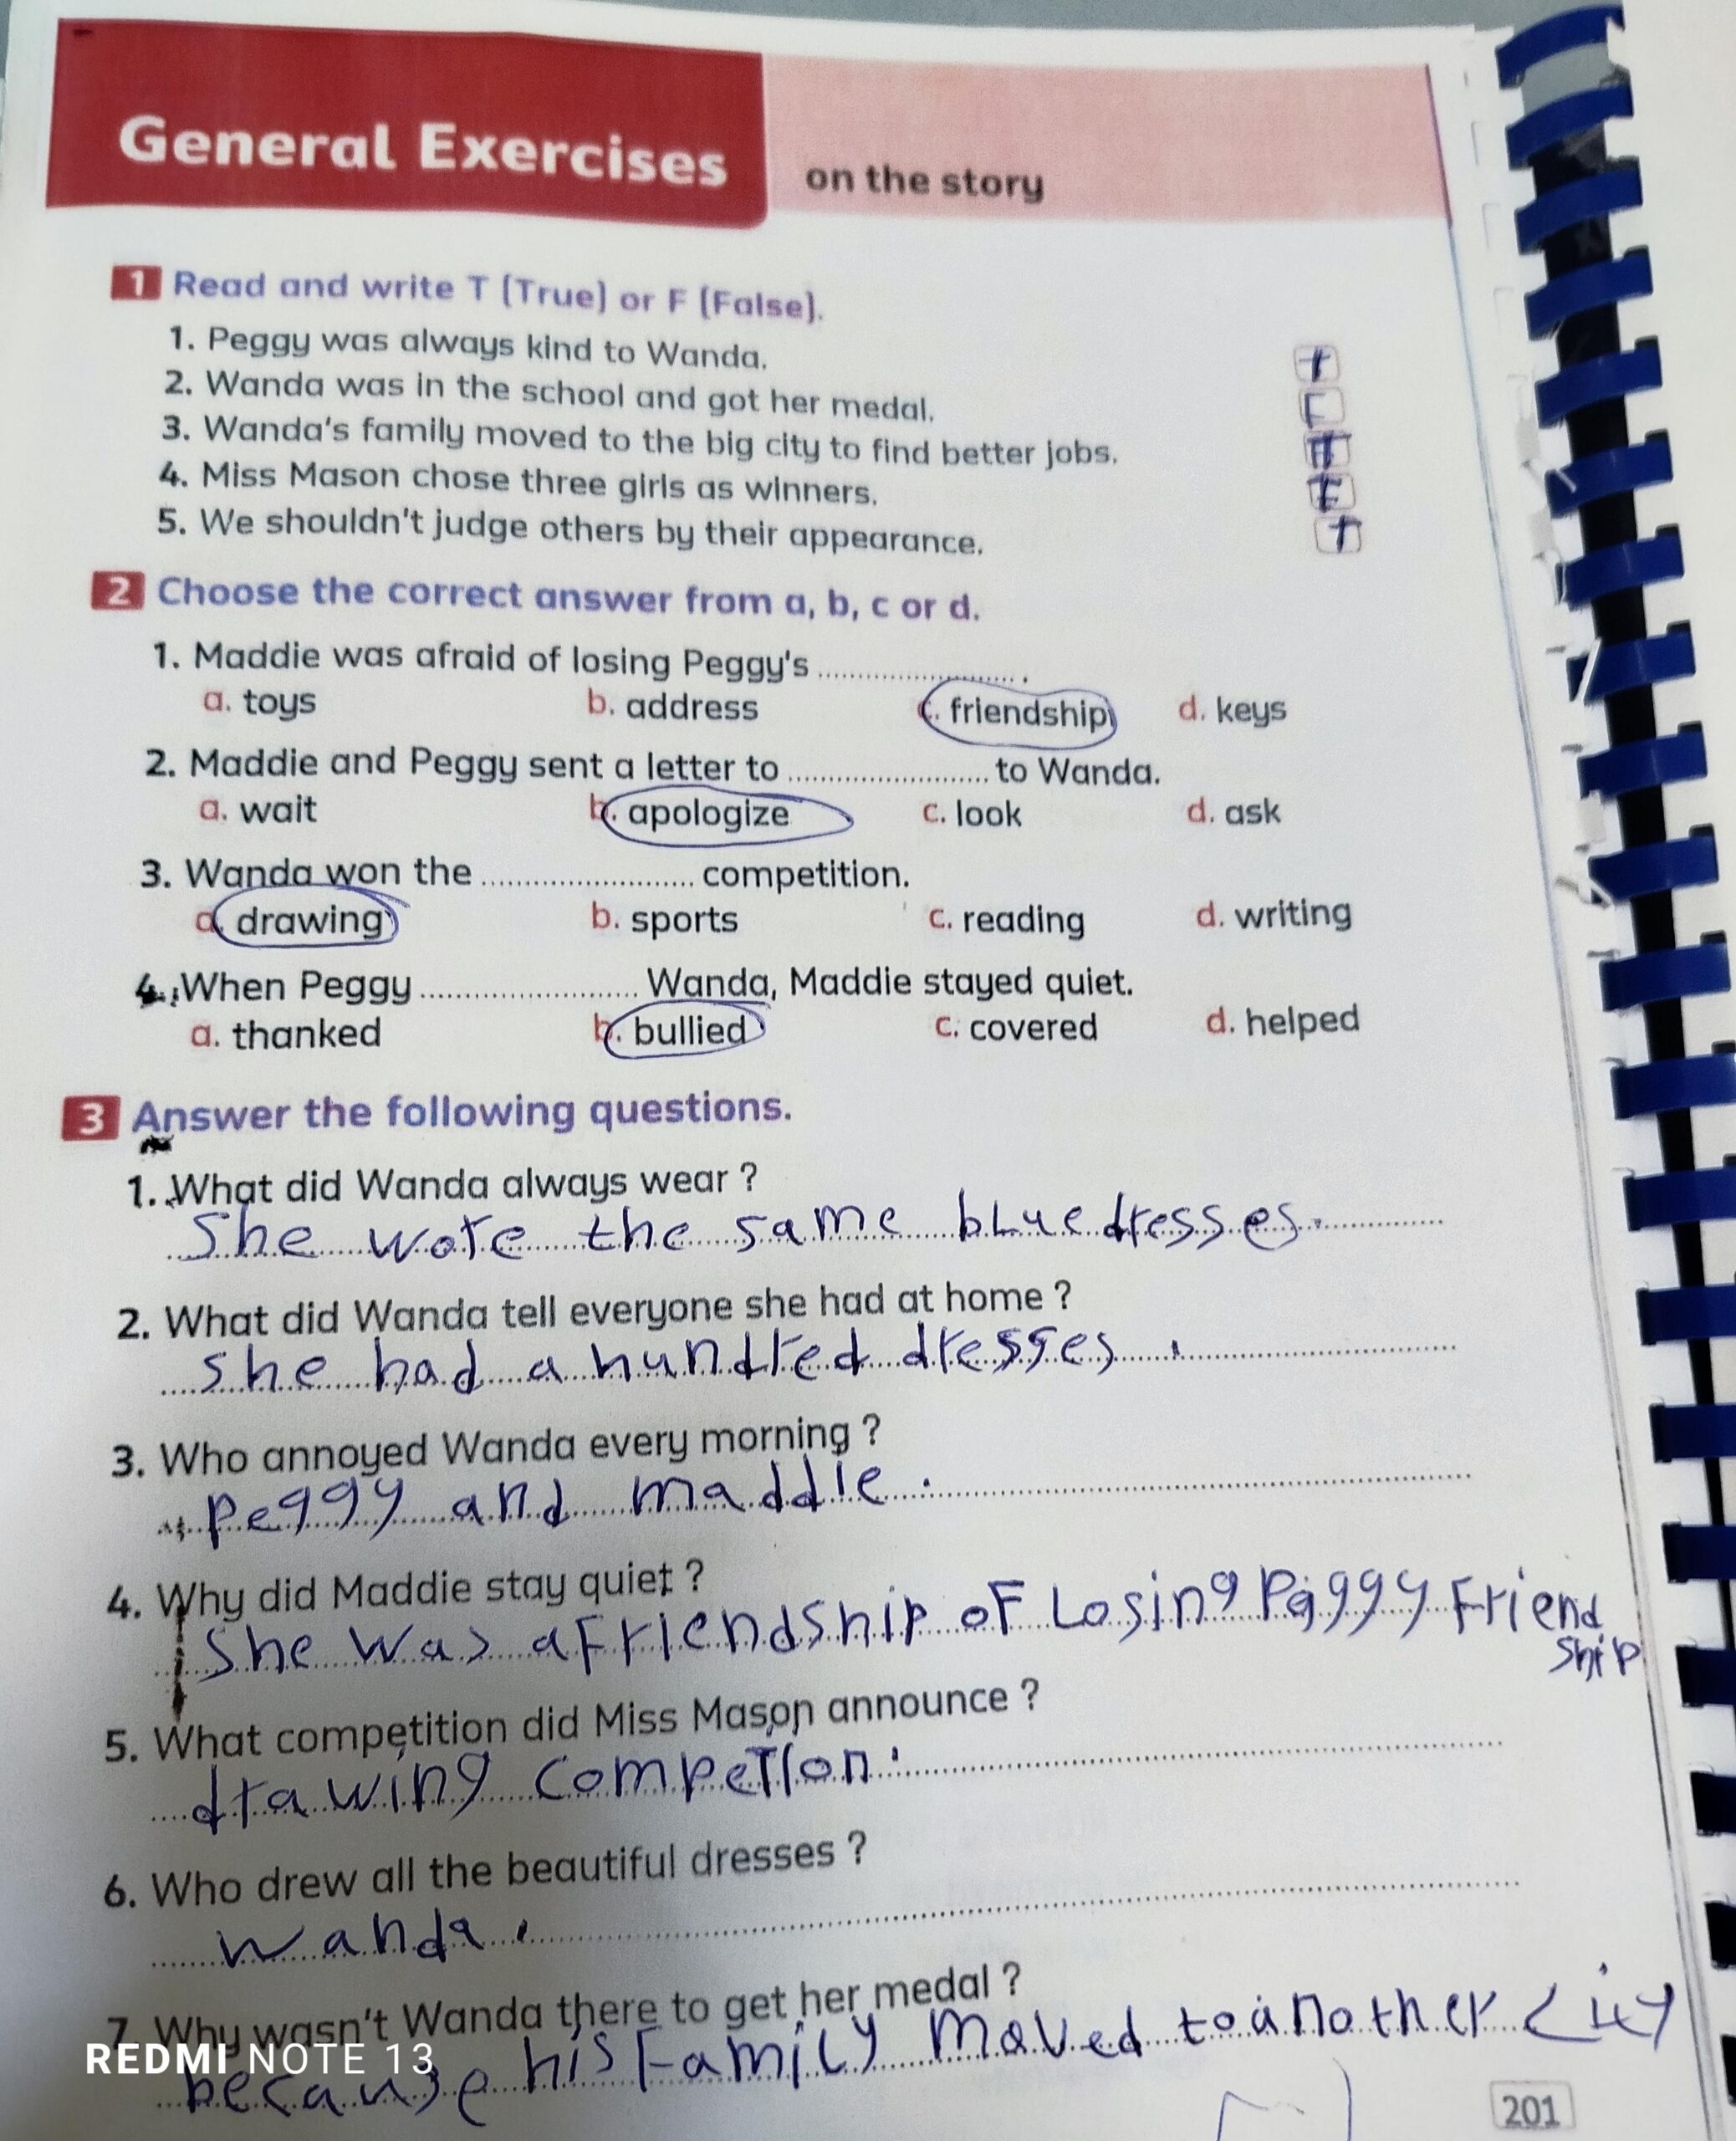 General Exercises on the story
1 Read and write T (True) or F (False).
1. Peggy was always kind to Wanda. T
2. Wanda was in the school and got her medal. F
3. Wanda's family moved to the big city to find better jobs.
4. Miss Mason chose three girls as winners. F
5. We shouldn't judge others by their appearance. T
2 Choose the correct answer from a, b, c or d.
1. Maddie was afraid of losing Peggy's ........................ .
a. toys b. address c. friendship d. keys
2. Maddie and Peggy sent a letter to ........................ to Wanda.
a. wait b. apologize c. look d. ask
3. Wanda won the ........................ competition.
a. drawing b. sports c. reading d. writing
4. When Peggy ........................ Wanda, Maddie stayed quiet.
a. thanked b. bullied c. covered d. helped
3 Answer the following questions.
1. What did Wanda always wear ?
She wore the same blue dresses.
2. What did Wanda tell everyone she had at home ?
She had a hundred dresses.
3. Who annoyed Wanda every morning ?
Peggy and maddie.
4. Why did Maddie stay quiet ?
She was a Friendship of Losing Peggy Friend
ship
5. What competition did Miss Mason announce ?
drawing competion.
6. Who drew all the beautiful dresses ?
wanda.
7. Why wasn't Wanda there to get her medal ?
because his Family moved to another city
REDMI NOTE 13
201